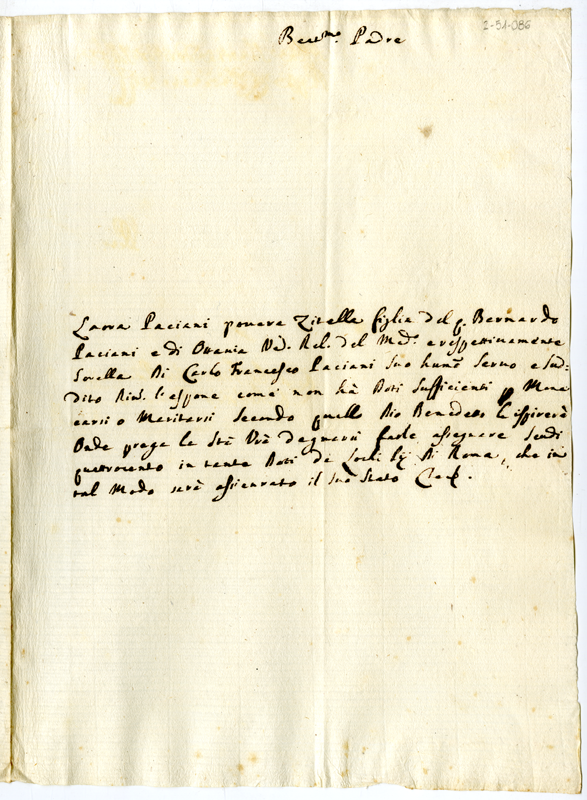 2-51-086
Beat.mo Padre
Laora Paciani povera Zitella figlia del q. Bernardo
Paciani e di Ottavia Ved. Rel. del Med.o e respettivamente
Sorella di Carlo Francesco Paciani suo hum.o Servo e Sud=
dito l'espone come non hà Doti sufficienti p Mona
carsi o Maritarsi secondo quello Dio Benedetto l'ispirerà
Onde prega la Stà Vrà degnarsi farle assegnare Scudi
quattrocento in tante Doti de Lochi Pij di Roma, che in
tal Modo serà assicurato il suo stato Che